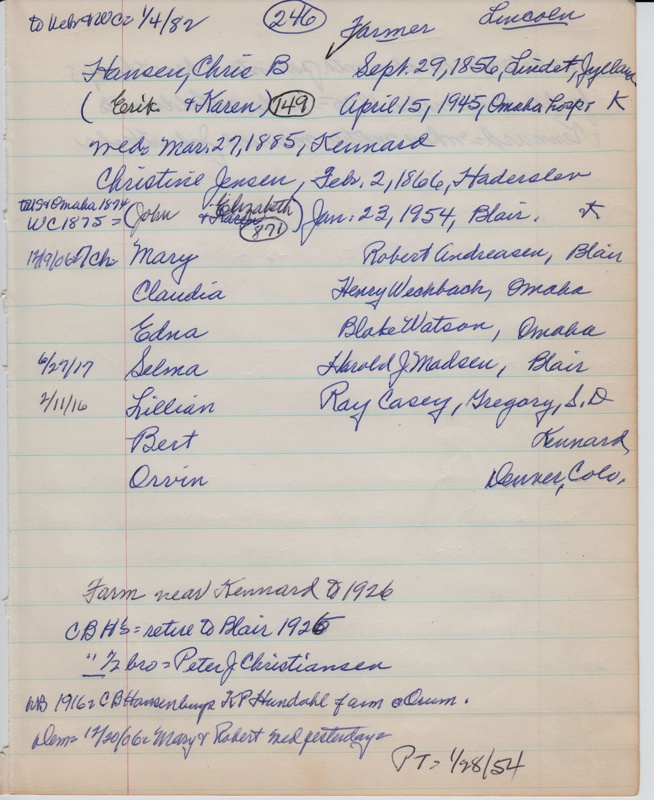 to Nebr & WC = 1/4/82 246 Farmer Lincoln
Hansen, Chris B Sept. 29, 1856, Lindet, Jylland
(Erik & Karen) 149 April 15, 1945, Omaha hosp. K
Wed. Mar. 27, 1885, Kennard
Christine Jensen, Febr. 2, 1866, Haderslev
to US & Omaha 1874
WC 1875 = (John & Elizabeth) 871 Jan. 23, 1954, Blair. K
12/19/06 7 Ch. Mary Robert Andreasen, Blair
Claudia Henry Wechbach, Omaha
Edna Blake Watson, Omaha
6/27/17 Selma Harold J. Madsen, Blair
2/11/16 Lillian Ray Casey, Gregory, S.D
Bert Kennard
Orvin Denver, Colo.
Farm near Kennard to 1926
CBH's = retire to Blair 1926
" 1/2 bro = Peter J Christiansen
NB 1916 = CB Hansen buys K P Hundahl farm @ Orum.
Dem = 12/20/06 = Mary & Robert wed yesterday =
PT = 1/28/54